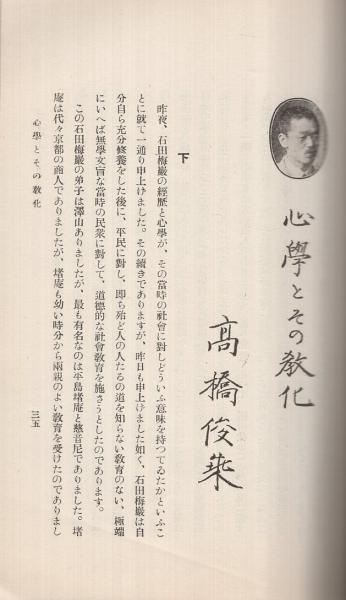 心學とその教化
高橋俊乗
下
昨夜、石田梅巖の經歷と心學が、その當時の社會に對しどういふ意味を持つてゐたかといふこ
とに就て一通り申上げました。その續きでありますが、昨日も申上げました如く、石田梅巖は自
分自ら充分修養をした後に、平民に對し、即ち殆ど人の人たるの道を知らない教育のない、極端
にいへば無學文盲な當時の民衆に對して、道德的な社會教育を施さうとしたのであります。
この石田梅巖の弟子は澤山ありましたが、最も有名なのは手島堵庵と慈音尼でありました。堵
庵は代々京都の商人でありましたが、堵庵も幼い時分から兩親のよい教育を受けたのでありまし
心學とその教化
三五